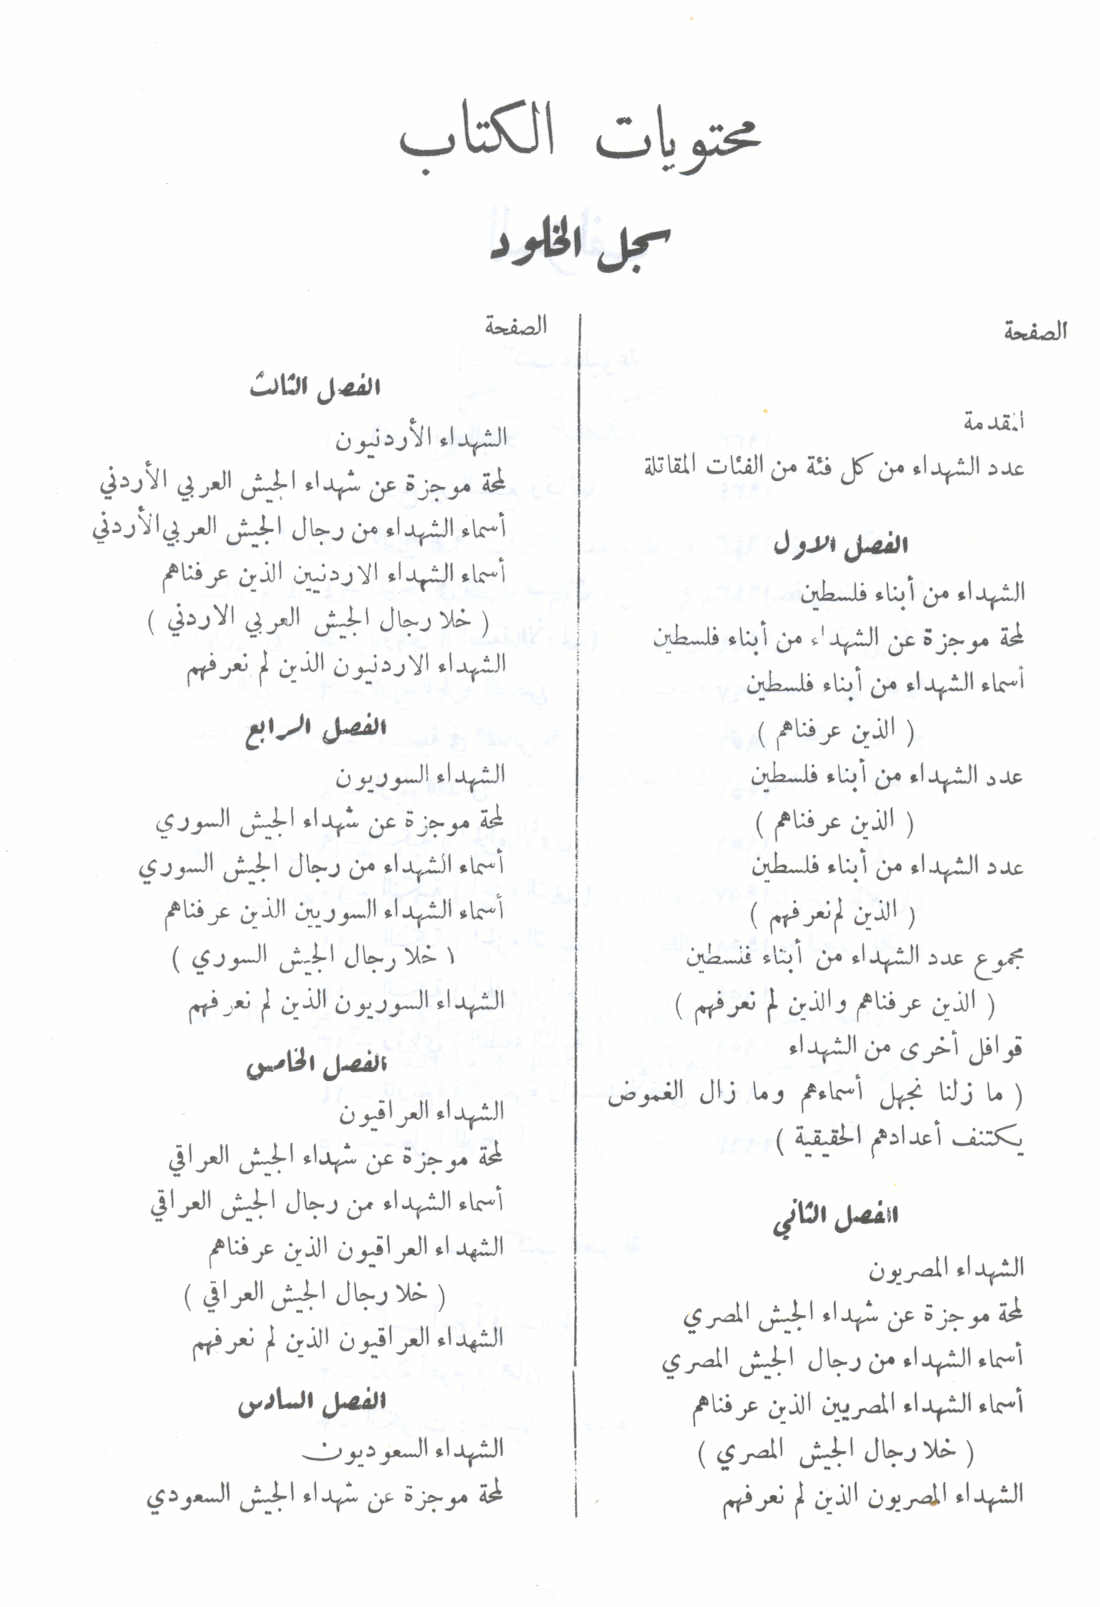 محتويات الكتاب
سجل الخلود
الصفحة
المقدمة
عدد الشهداء من كل فئة من الفئات المقاتلة
الفصل الاول
الشهداء من أبناء فلسطين
لمحة موجزة عن الشهداء من أبناء فلسطين
أسماء الشهداء من أبناء فلسطين
( الذين عرفناهم )
عدد الشهداء من أبناء فلسطين
( الذين عرفناهم )
عدد الشهداء من أبناء فلسطين
( الذين لم نعرفهم )
مجموع عدد الشهداء من أبناء فلسطين
( الذين عرفناهم والذين لم نعرفهم )
قوافل أخرى من الشهداء
( ما زلنا نجهل أسماءهم وما زال الغموض
يكتنف أعدادهم الحقيقية )
الفصل الثاني
الشهداء المصريون
لمحة موجزة عن شهداء الجيش المصري
أسماء الشهداء من رجال الجيش المصري
أسماء الشهداء المصريين الذين عرفناهم
( خلا رجال الجيش المصري )
الشهداء المصريون الذين لم نعرفهم
الصفحة
الفصل الثالث
الشهداء الأردنيون
لمحة موجزة عن شهداء الجيش العربي الأردني
أسماء الشهداء من رجال الجيش العربي الأردني
أسماء الشهداء الاردنيين الذين عرفناهم
( خلا رجال الجيش العربي الاردني )
الشهداء الاردنيون الذين لم نعرفهم
الفصل الرابع
الشهداء السوريون
لمحة موجزة عن شهداء الجيش السوري
أسماء الشهداء من رجال الجيش السوري
أسماء الشهداء السوريين الذين عرفناهم
( خلا رجال الجيش السوري )
الشهداء السوريون الذين لم نعرفهم
الفصل الخامس
الشهداء العراقيون
لمحة موجزة عن شهداء الجيش العراقي
أسماء الشهداء من رجال الجيش العراقي
الشهداء العراقيون الذين عرفناهم
( خلا رجال الجيش العراقي )
الشهداء العراقيون الذين لم نعرفهم
الفصل السادس
الشهداء السعوديون
لمحة موجزة عن شهداء الجيش السعودي